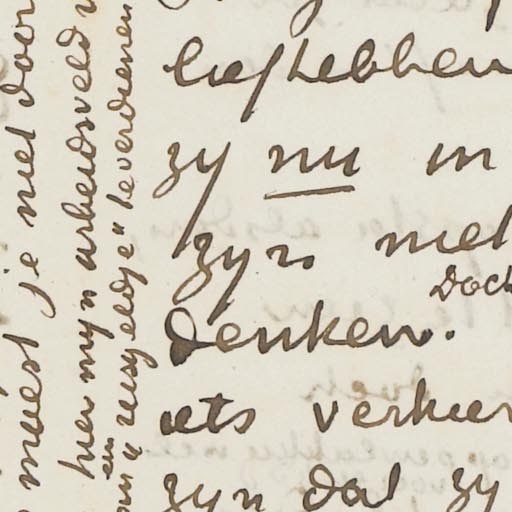 liefhebben
zy nu in
zyn niet
Doch
denken.
iets verkeer
zyn dat zy
moest je niet door
hier myn arbeidsveld
en
"reisgeldje" te verdienen